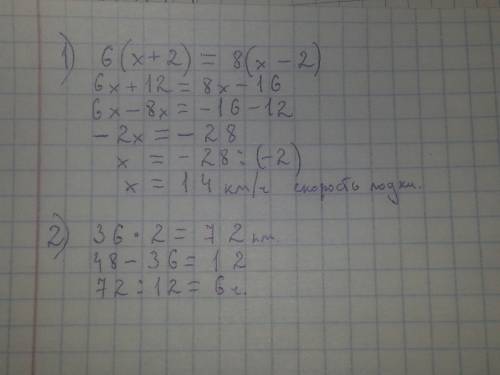 1) 6(x+2) = 8(x-2)
6x+12 = 8x-16
6x-8x = -16-12
-2x = -28
x = -28:(-2)
x = 14 км/ч скорость лодки.
2) 36·2 = 72 км
48-36 = 12
72:12 = 6 ч.